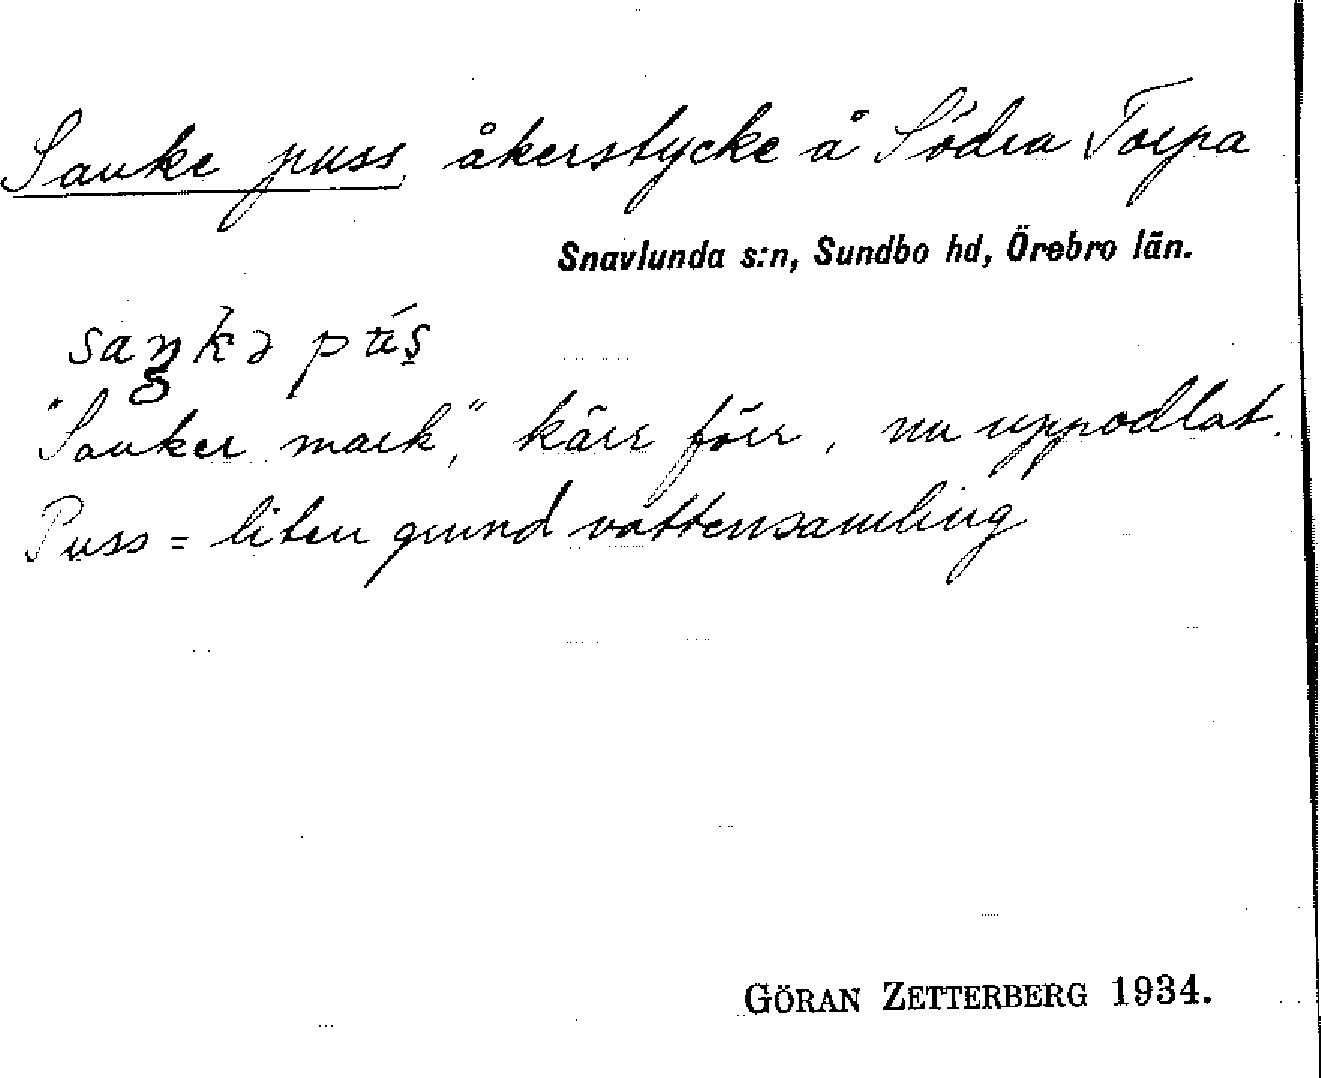 Sanke puss, åkerstycke å Södra Torpa
Snavlunda s:n, Sundbo hd, Örebro län.
saŋkə pús
"Sanker mark", kärr förr, nu uppodlat.
Puss = liten grund vattensamling
GÖRAN ZETTERBERG 1934.